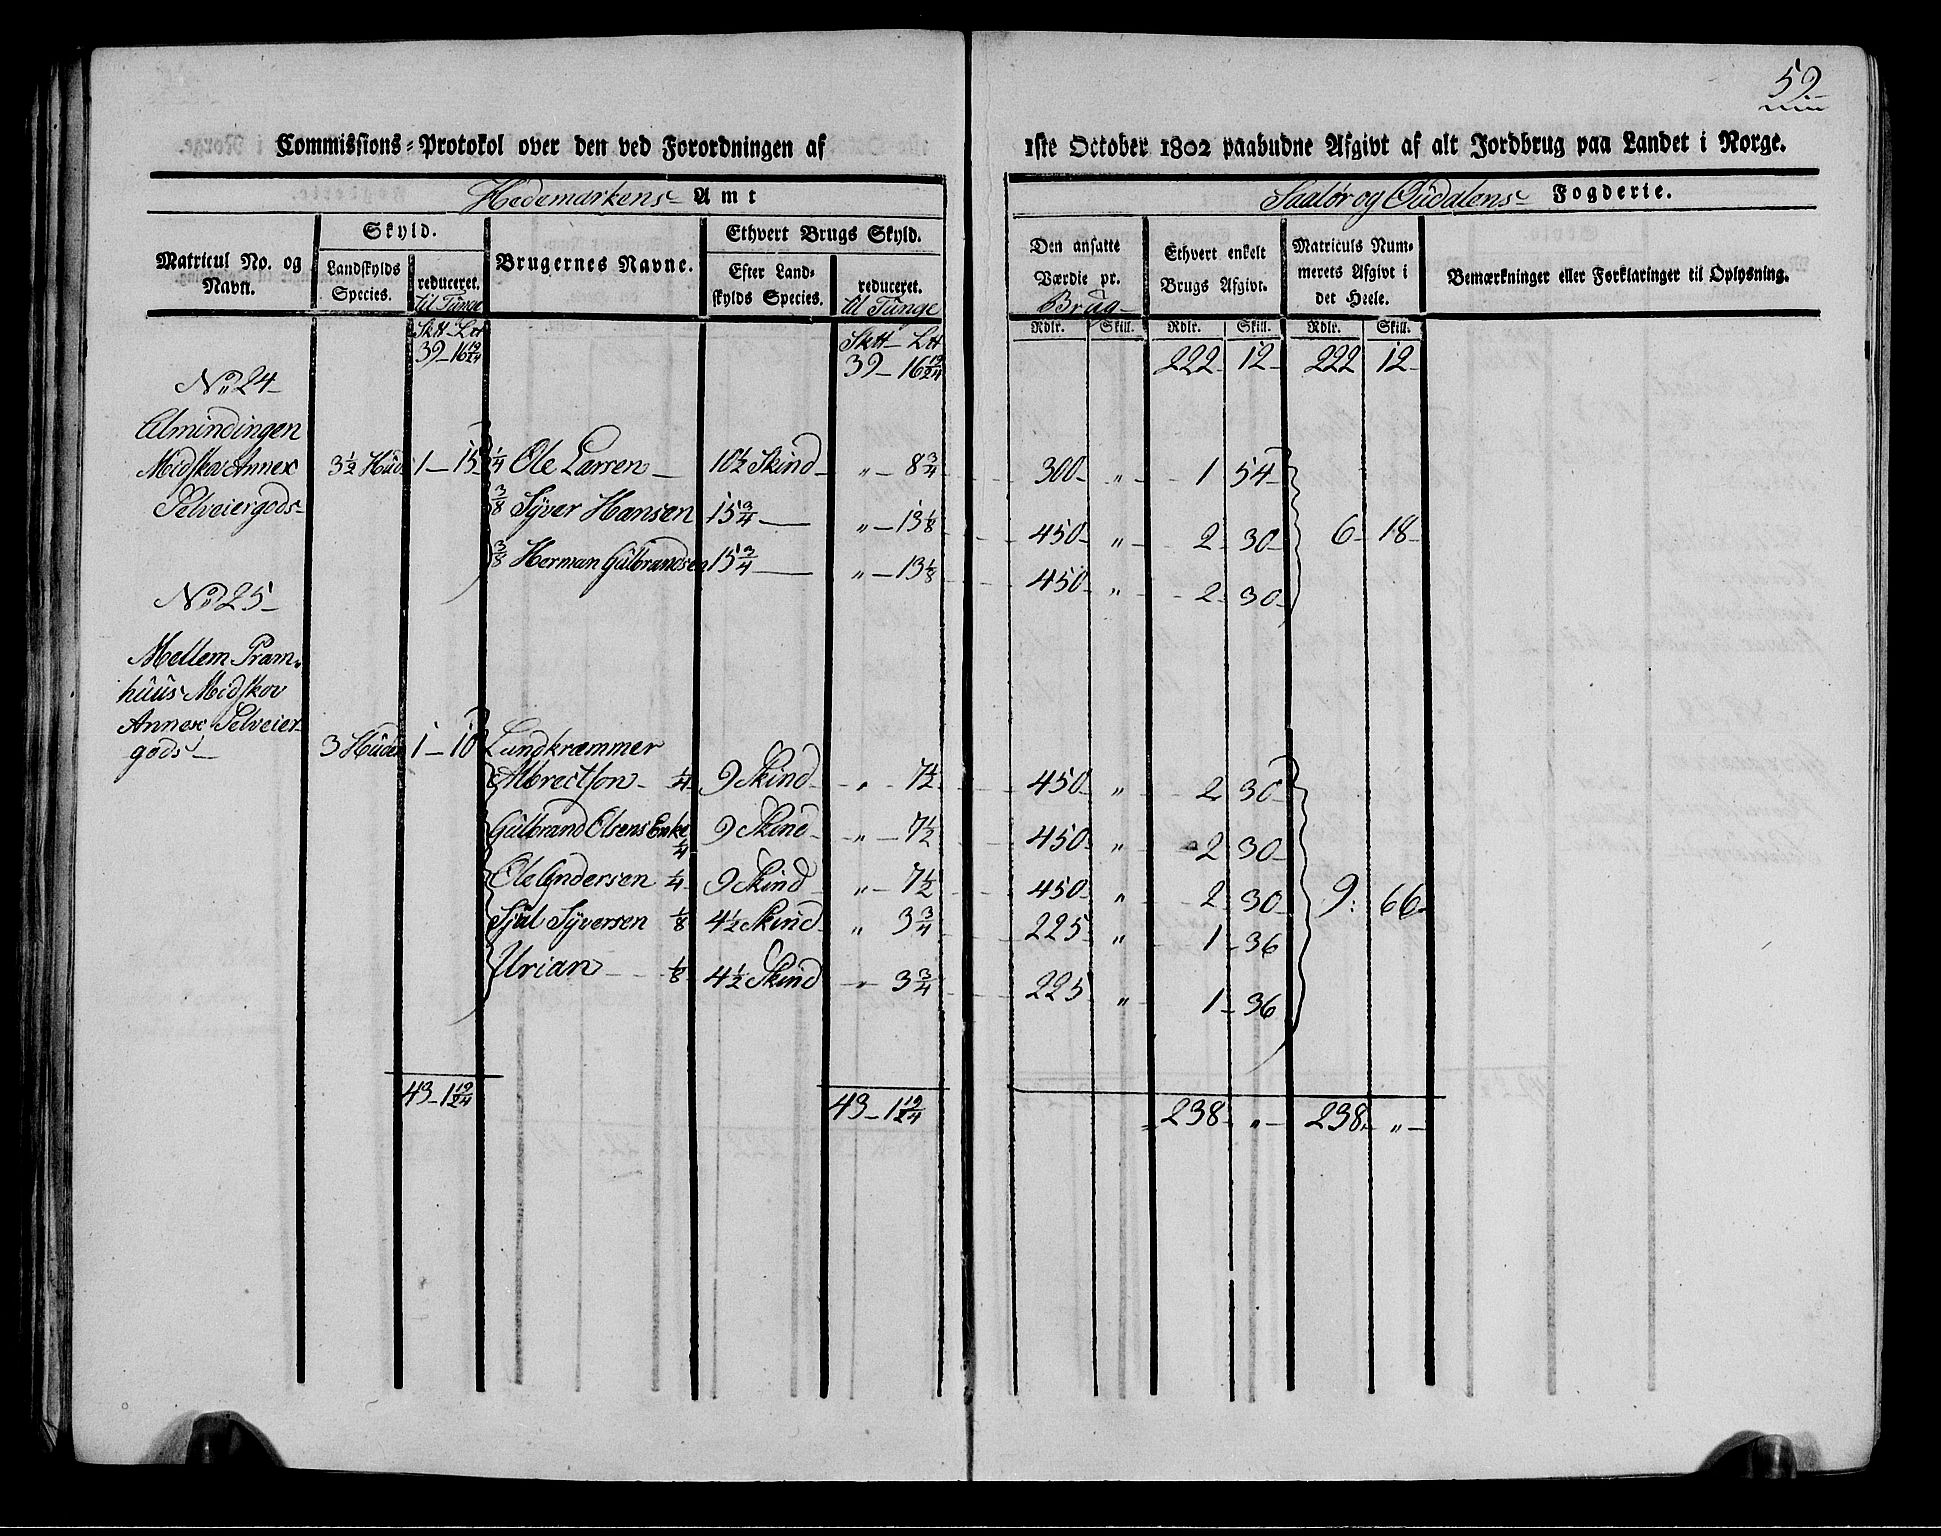 59
Commissions-Protokol over den ved Forordningen af 1ste October 1802 paabudne Afgivt af alt Jordbrug paa Landet i Norge.
Hedemarkens Amt
Saalör og Oüdalens Fogderie.
Matricul No. og Navn.
Skyld.
Landskylds Species.
reduceret. til Tünge
Brugernes Navne.
Ethvert Brugs Skyld.
Efter Landskylds Species.
reduceret. til Tünge
Den ansatte Værdie pr. Brüg
Ethvert enkelt Brugs Afgivt.
Matriculs Nummerets Afgivt i det Heele.
Bemærkninger eller Forklaringer til Oplysning.
Rdlr. Skill. Rdlr. Skill. Rdlr. Skill.
39 – 16 19/24 39 – 16 19/24 222 – 12 – 222 12 –
No 24 –
Almindingen
Midskov Annex 3½ Hüd 1 – 15 ¼ Ole Larsen – 10½ Skind – „ – 8¾ 300 „ 1 54
Selveiergods – ⅜ Syver Hansen 15¾ — „ – 13⅛ 450 „ 2 30 6 – 18 –
⅜ Herman Gülbrandsen 15¾ — „ – 13⅛ 450 „ 2 30
No 25 –
Mellem Pram-
hüüs Midskov
Annex Selveier-
gods – 3 Hüder 1 – 10 Landkræmmer
Albrectson – ¼ 9 Skind „ 7½ 450 „ 2 30
Gülbrand Olsens Enke ¼ 9 Skind – „ – 7½ 450 „ 2 30
Ole Andersen ¼ 9 Skind „ – 7½ 450 „ 2 30 9: 66
Sjül Syversen ⅛ 4½ Skind „ 3¾ 225 „ 1 – 36
Urian ⅛ 4½ Skind „ 3¾ 225 „ 1 – 36
43 – 1 19/24 43 – 1 19/24 238 – „ – 238 – „ –